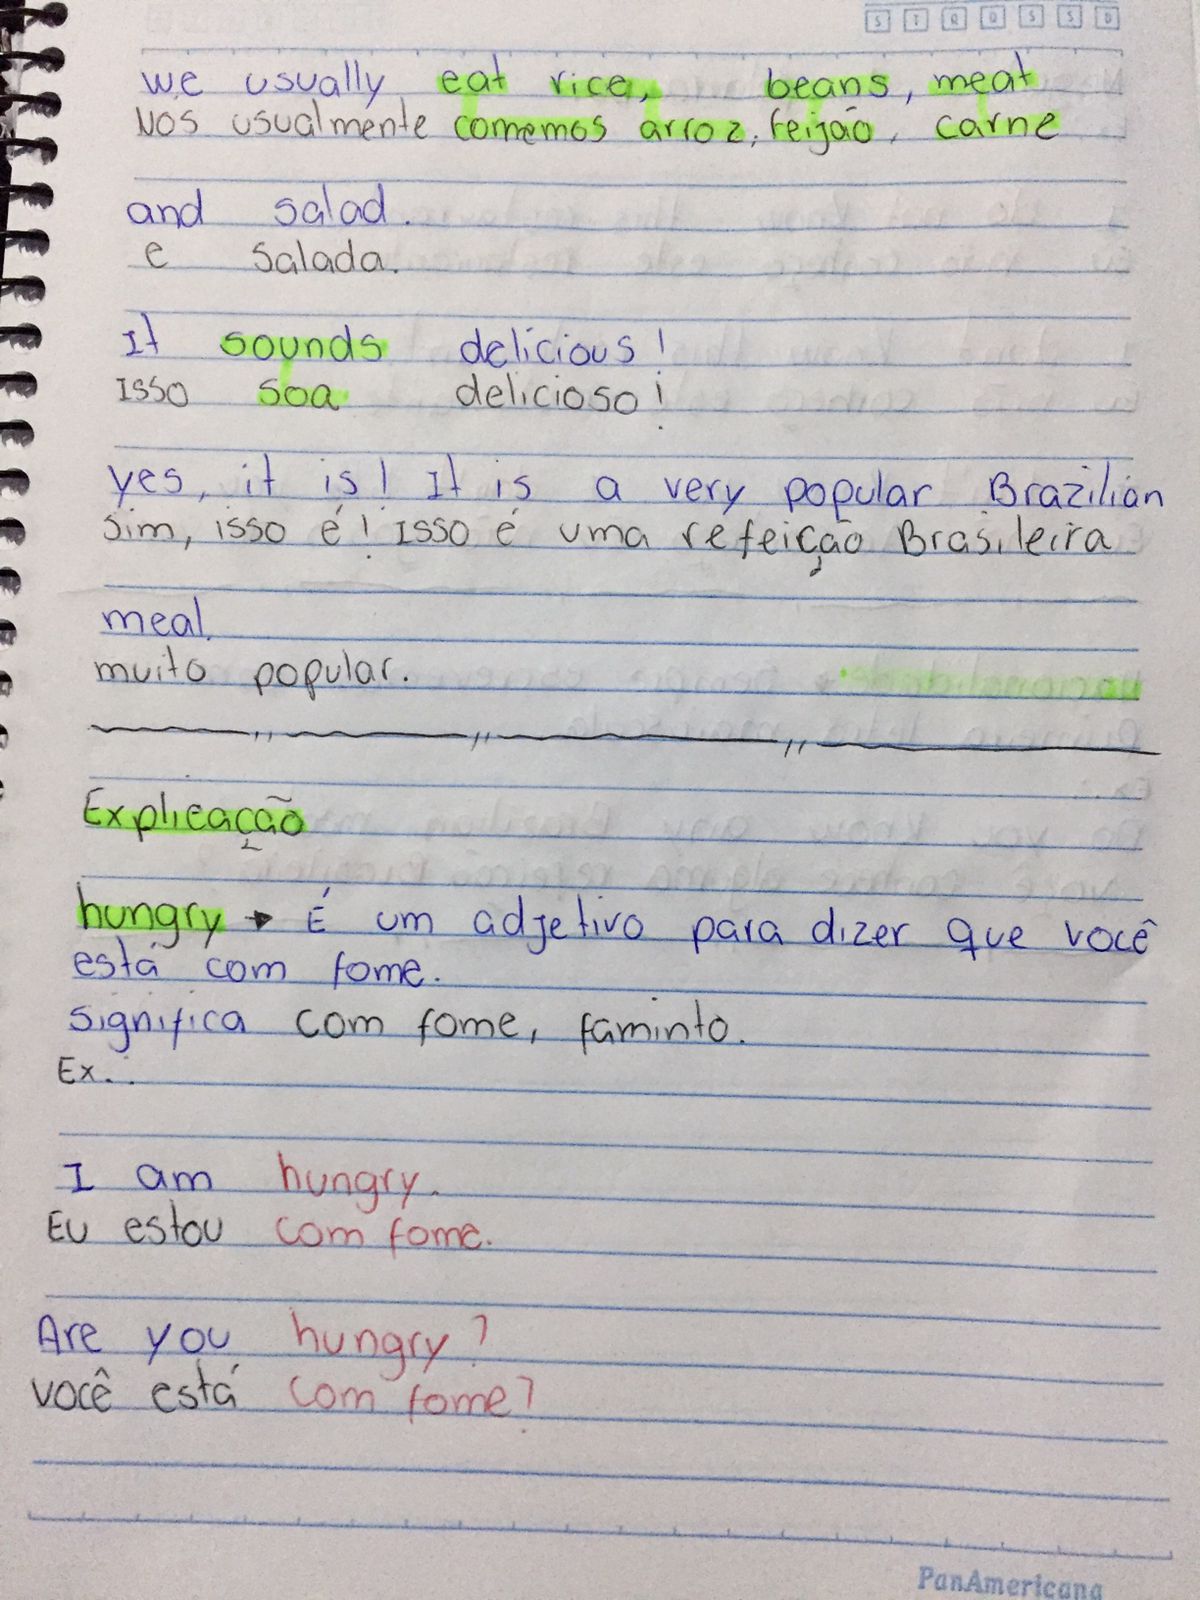 S T Q Q S S D
we usually eat rice, beans, meat
Nos usualmente comemos arroz, feijão, carne
and salad.
e salada.
It sounds delicious!
Isso soa delicioso!
yes, it is! It is a very popular Brazilian
Sim, isso é! Isso é uma refeição Brasileira
meal.
muito popular.
Explicação
hungry → É um adjetivo para dizer que você
está com fome.
significa com fome, faminto.
Ex..
I am hungry.
Eu estou com fome.
Are you hungry?
você está com fome?
PanAmericana